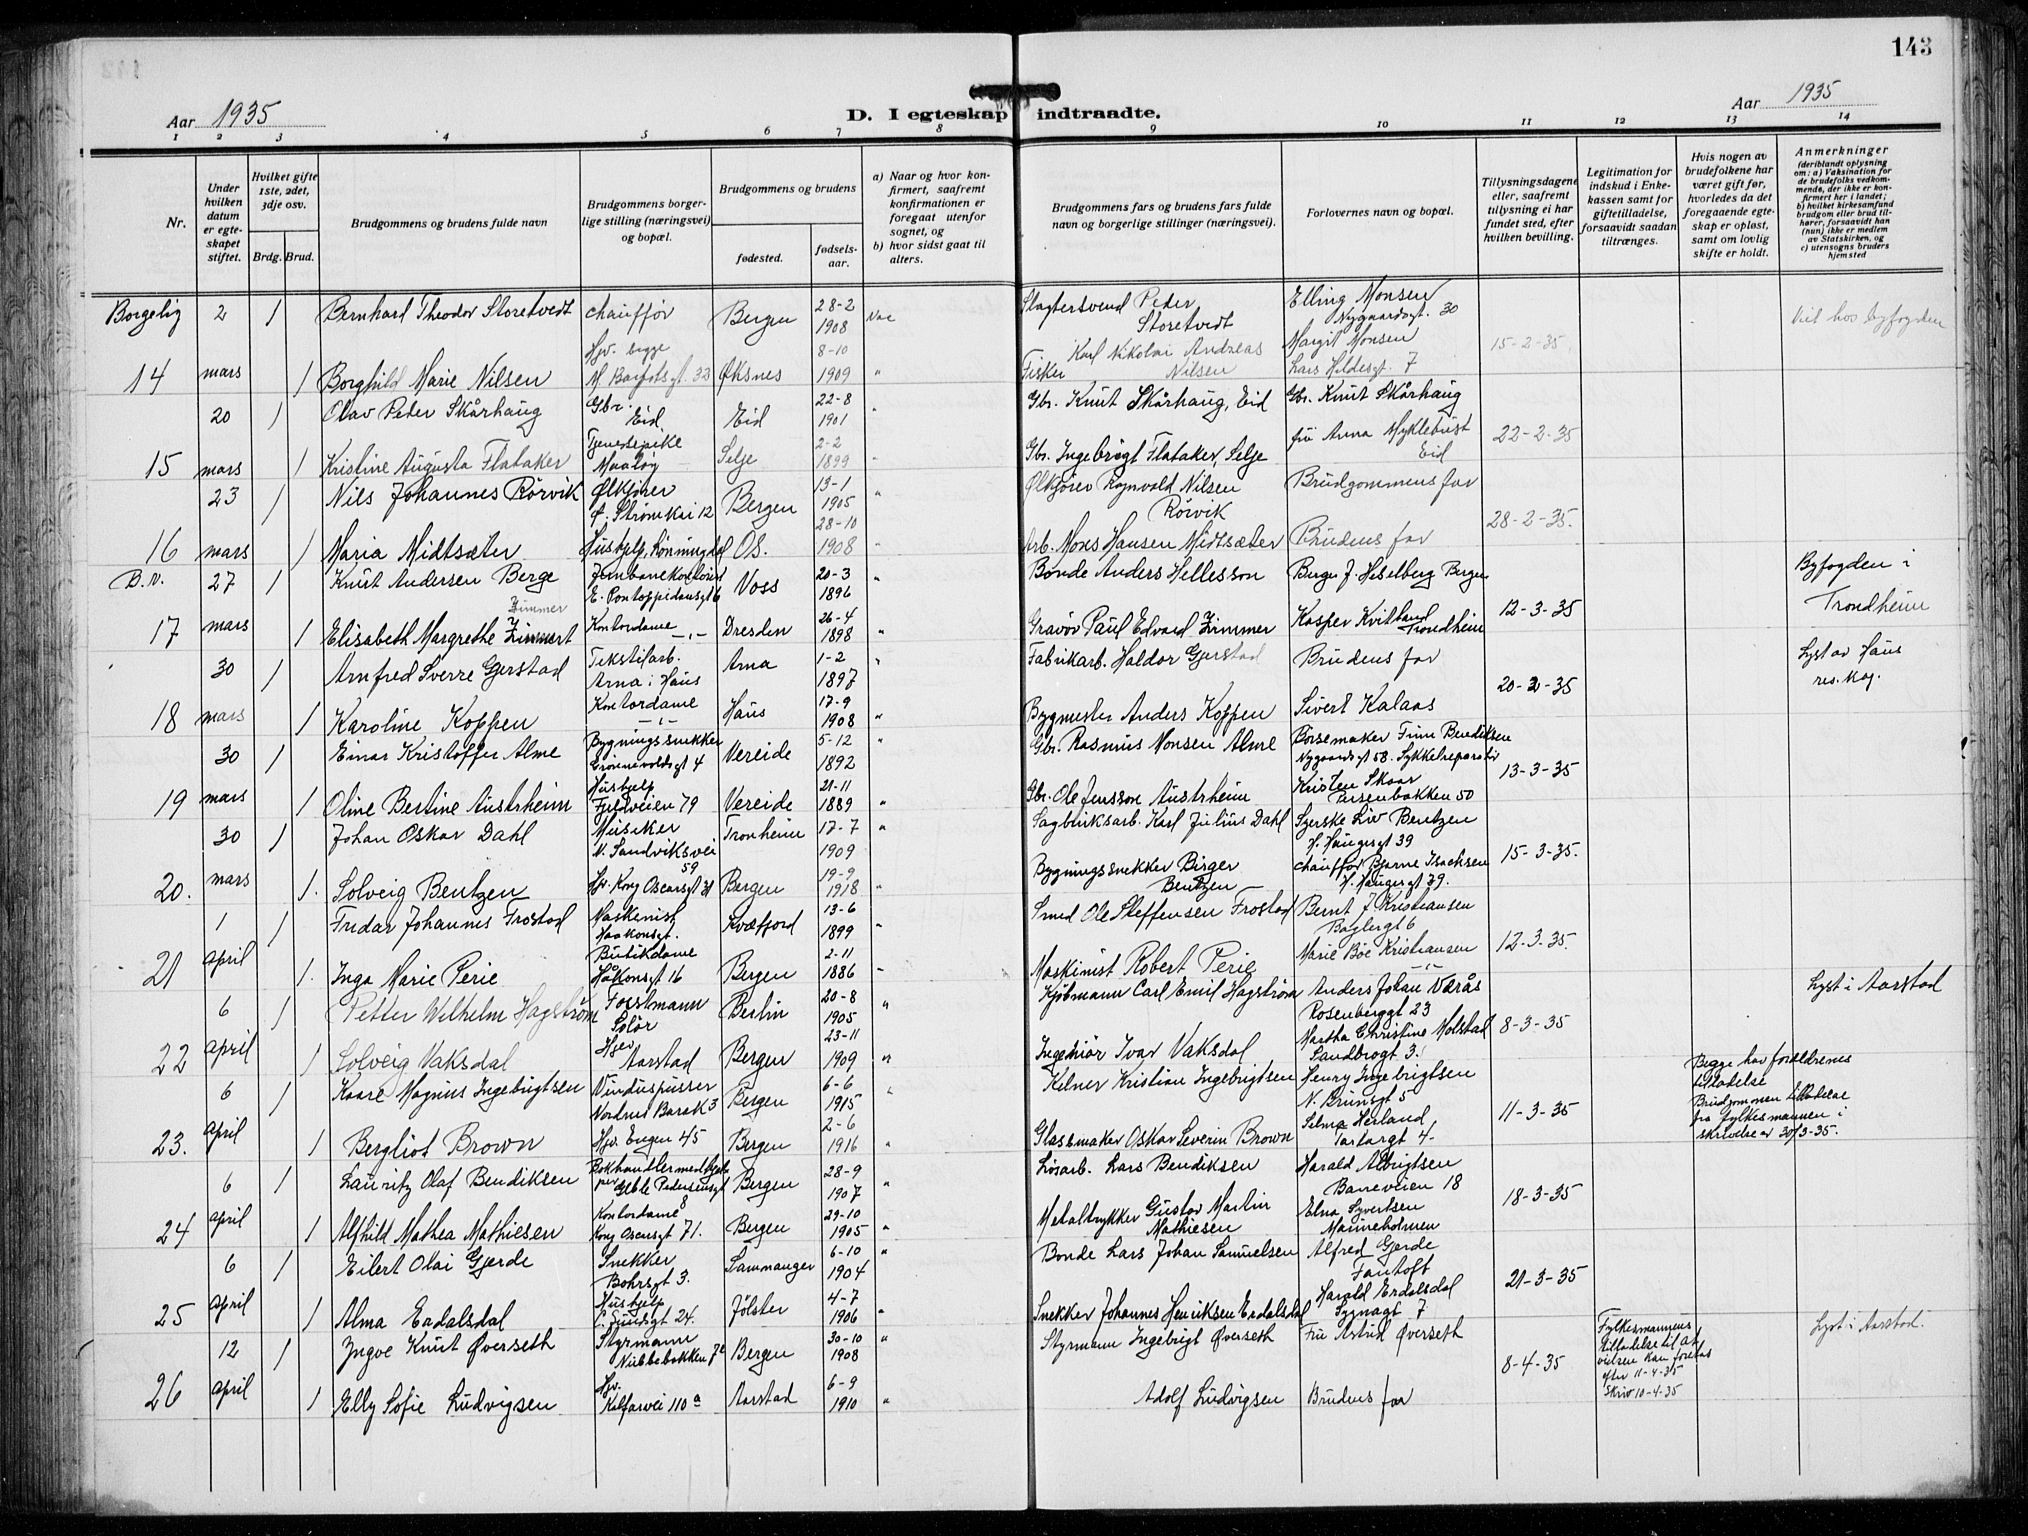 143
Aar 1935
D. I egteskap indtraadte.
Aar 1935
1 2 3 4 5 6 7 8 9 10 11 12 13 14
Nr.
Under hvilken datum er egteskapet stiftet.
Hvilket gifte 1ste, 2det, 3dje osv.
Brdg. Brud.
Brudgommens og brudens fulde navn
Brudgommens borgerlige stilling (næringsvei) og bopæl.
Brudgommens og brudens
fødested.
fødselsaar.
a) Naar og hvor konfirmert, saafremt konfirmationen er foregaat utenfor sognet, og
b) hvor sidst gaat til alters.
Brudgommens fars og brudens fars fulde navn og borgerlige stillinger (næringsvei).
Forlovernes navn og bopæl.
Tillysningsdagene eller, saafremt tillysning ei har fundet sted, efter hvilken bevilling.
Legitimation for indskud i Enkekassen samt for giftetilladelse, forsaavidt saadan tiltrænges.
Hvis nogen av brudefolkene har været gift før, hvorledes da det foregaaende egteskap er opløst, samt om lovlig skifte er holdt.
Anmerkninger
(deriblandt oplysning om: a) Vaksination for de brudefolks vedkommende, der ikke er konfirmert her i landet; b) hvilket kirkesamfund brudgom eller brud tilhører, forsaavidt han (hun) ikke er medlem av Statskirken, og c) utensogns bruders hjemsted
Borgelig 2 1 Bernhard Theodor Storetvedt chauffør Bergen 28-2 1908 Slagtersvend Peter Storetvedt Elling Monsen Nygaardsgt. 30 byfogden
14 mars 1 Borghild Marie Nilsen Hjv. begge 33 Øksnes 8-10 1909 " Fisker Karl Nikolai Andreas Nilsen Margit Monsen Lars Hildesgt. 7 15-2-35
20 1 Olav Peter Skårhaug Gbr. Eid Eid 22-8 1901 " Gbr. Knut Skårhaug, Eid Gbr. Knut Skårhaug
15 mars 1 Kristine Augusta Flataker Tjenestepike Maaløy Selje 2-2 1899 " Gbr. Ingebrigt Flataker, Selje fru Anna Myklebust Eid 22-2-35
23 1 Nils Johannes Rörvik Ølkjører C. Strømkai 12 Bergen 13-1 1905 " Ølkjører Rognvald Nilsen Rörvik Brudgommens far
16 mars 1 Maria Midtsæter Hushjelp, Rönningdal Os. 28-10 1908 " Arb. Mons Hansen Midtsæter Brudens far 28-2-35.
B.v. 27 1 Knut Andersen Berge Jernbanekontorist E. Pontoppidansgt 6 Voss 20-3 1896 " Bonde Anders Hellesson Berge J. Heselberg Bergen Byfogden i Trondheim
Zimmer
17 mars 1 Elisabeth Margrethe Kontordame -"- Dresden 26-4 1898 " Gravør Paul Edvard Zimmer Kasper Kvitland Trondheim 12-3-35
30 1 Arnfred Sverre Gjerstad Tekstilarb. Arna i Haus Arna 1-2 1897 " Fabrikarb. Haldor Gjerstad Brudens far Lyst av Haus res. kap.
18 mars 1 Karoline Koppen Kontordame -"- Haus 17-9 1908 " Bygmester Anders Koppen Sivert Kalaas 20-2-35
30 1 Einar Kristoffer Alme Bygningssnekker 4 Vereide 5-12 1892 " Gbr. Rasmus Monsen Alme Börsemaker Finn Bendiksen Nygaardsgt 58. Sykkelreparatør
19 mars 1 Oline Bertine Austrheim Hushjelp Fjellveien 79 Vereide 21-11 1889 " Gbr. Ole Jensson Austrheim Kristen Skaar Persenbakken 50 13-3-35
30 1 Johan Oskar Dahl Musiker N. Sandviksvei 59 Tronheim 17-7 1909 " Sagbruksarb. Karl Julius Dahl Syerske Liv Bentzen H. Haugesgt 39
20. mars 1. Solveig Bentzen Hjv. Kong Oscarsgt 31 Bergen 19-9 1918 " Bygningssnekker Birger Bentzen chauffør Bjarne Isachsen H. Haugesgt 39. 15-3-35.
1 1 Fridar Johannes Frostad Maskinist Haakonsgt. Kvæfjord 13-6 1899 " Smed Ole Steffensen Frostad Bernt J Kristiansen Baglergt 6
21 april 1. Inga Marie Perie Butikdame Håkonsgt 16 Bergen 2-11 1886 " Maskinist Robert Perie Marie Böe Kristiansen -"- 12-3-35.
6 1 Petter Wilhelm Hagström Forstmann Solör Berlin 20-8 1905 " Kjöbmann Carl Emil Hagström Anders Johan Varås Rosenberggt 23 Lyst i Aarstad
22 april 1 Solveig Vaksdal Hjv Aarstad Bergen 23-11 1909 " Ingeniör Ivar Vaksdal Martha Christine Molstad Sandbrogt 3. 8-3-35
6 1 Kaare Magnus Ingebrigtsen Vinduspusser Nordnes Barak 3 Bergen 6-6 1915 " Kelner Kristian Ingebrigtsen Henry Ingebrigtsen N. Brunsgt 5 Begge har foreldrenes tilladelse
23. april 1 Bergliot Brown Hjv. Engen 45 Bergen 2-6 1916 " Glassmaker Oskar Severin Brown Selma Herland Tartargt 4- 11-3-35 Brudgommen tilladelse fra fylkesmannen i skrivelse av 30/3-35.
6 1 Lauritz Olaf Bendiksen Bokhandlermedhjelper Geble Pedersensgt 8 Bergen 28-9 1907 " Lörarb. Lars Bendiksen Harald Albrigtsen Baneveien 18
24 april 1 Alfhild Mathea Mathiesen Kontordame Kong Oscarsgt 71. Bergen 29-10 1905 " Metaltrykker Gustav Martin Mathiesen Elna Syvertsen Marineholmen 18-3-35
6 1 Eilert Olai Gjerde Snekker Bohrsgt 3. Samnanger 6-10 1904 " Bonde Lars Johan Samuelsen Alfred Gjerde Fantoft
25 april 1 Alma Erdalsdal Hushjelp C. Sundsgt 24. Jølster 4-7 1906 " Snekker Johannes Henriksen Erdalsdal Harald Erdalsdal 7 21-3-35
12 1 Yngve Knut Øverseth Styrmann Nubbebakken 7c Bergen 30-10 1908 " Styrmann Ingebrigt Øverseth Fru Astrid Øverseth Fylkesmannens tilladelse til at vielsen kan foretas efter 11-4-35 Skriv 10-4-35 Lyst i Aarstad.
26 april 1 Elly Sofie Ludvigsen Hjv. Kalfarvei 110a Aarstad 6-9 1910 " Adolf Ludvigsen Brudens far 8-4-35